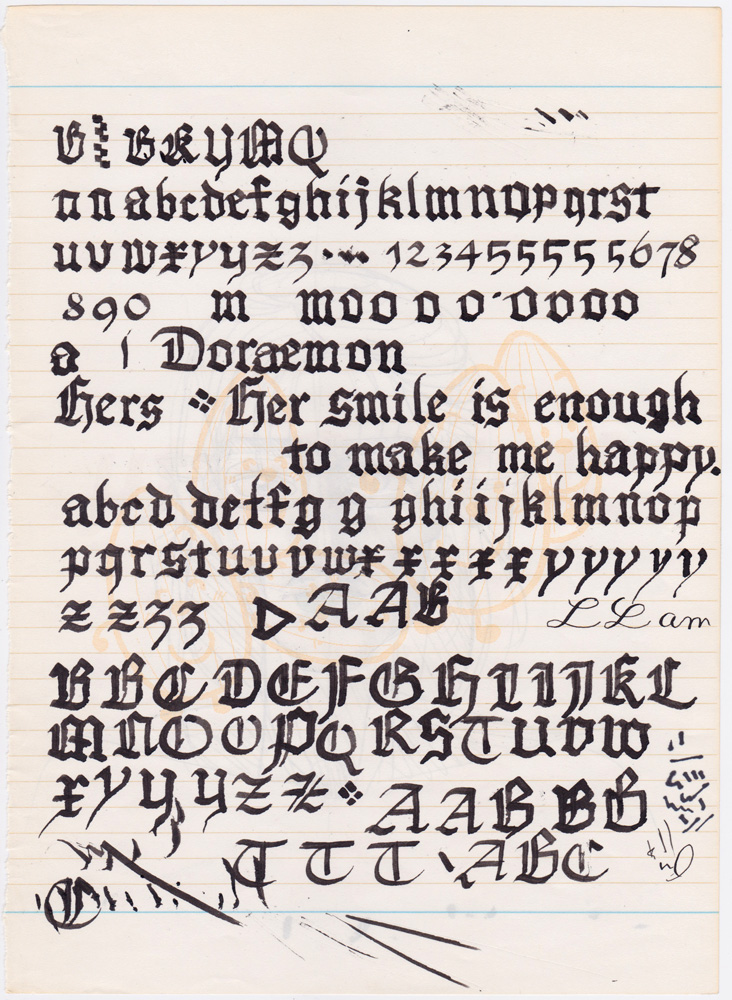 B BKYMQ
a a abcdefghijklmnopqrst
uvwxyyzz 1234555555678
890 m moo o o oooo
a Doraemon
Hers Her smile is enough
to make me happy.
abcd deffg g ghiijklmnop
pqrstuuvwxxxxxyyyyy
z zzz AAB L L am
BBCDEFGHIIJKL
MNOOPQRSTUVW
xyyyzz AABBB
C T T T ABC